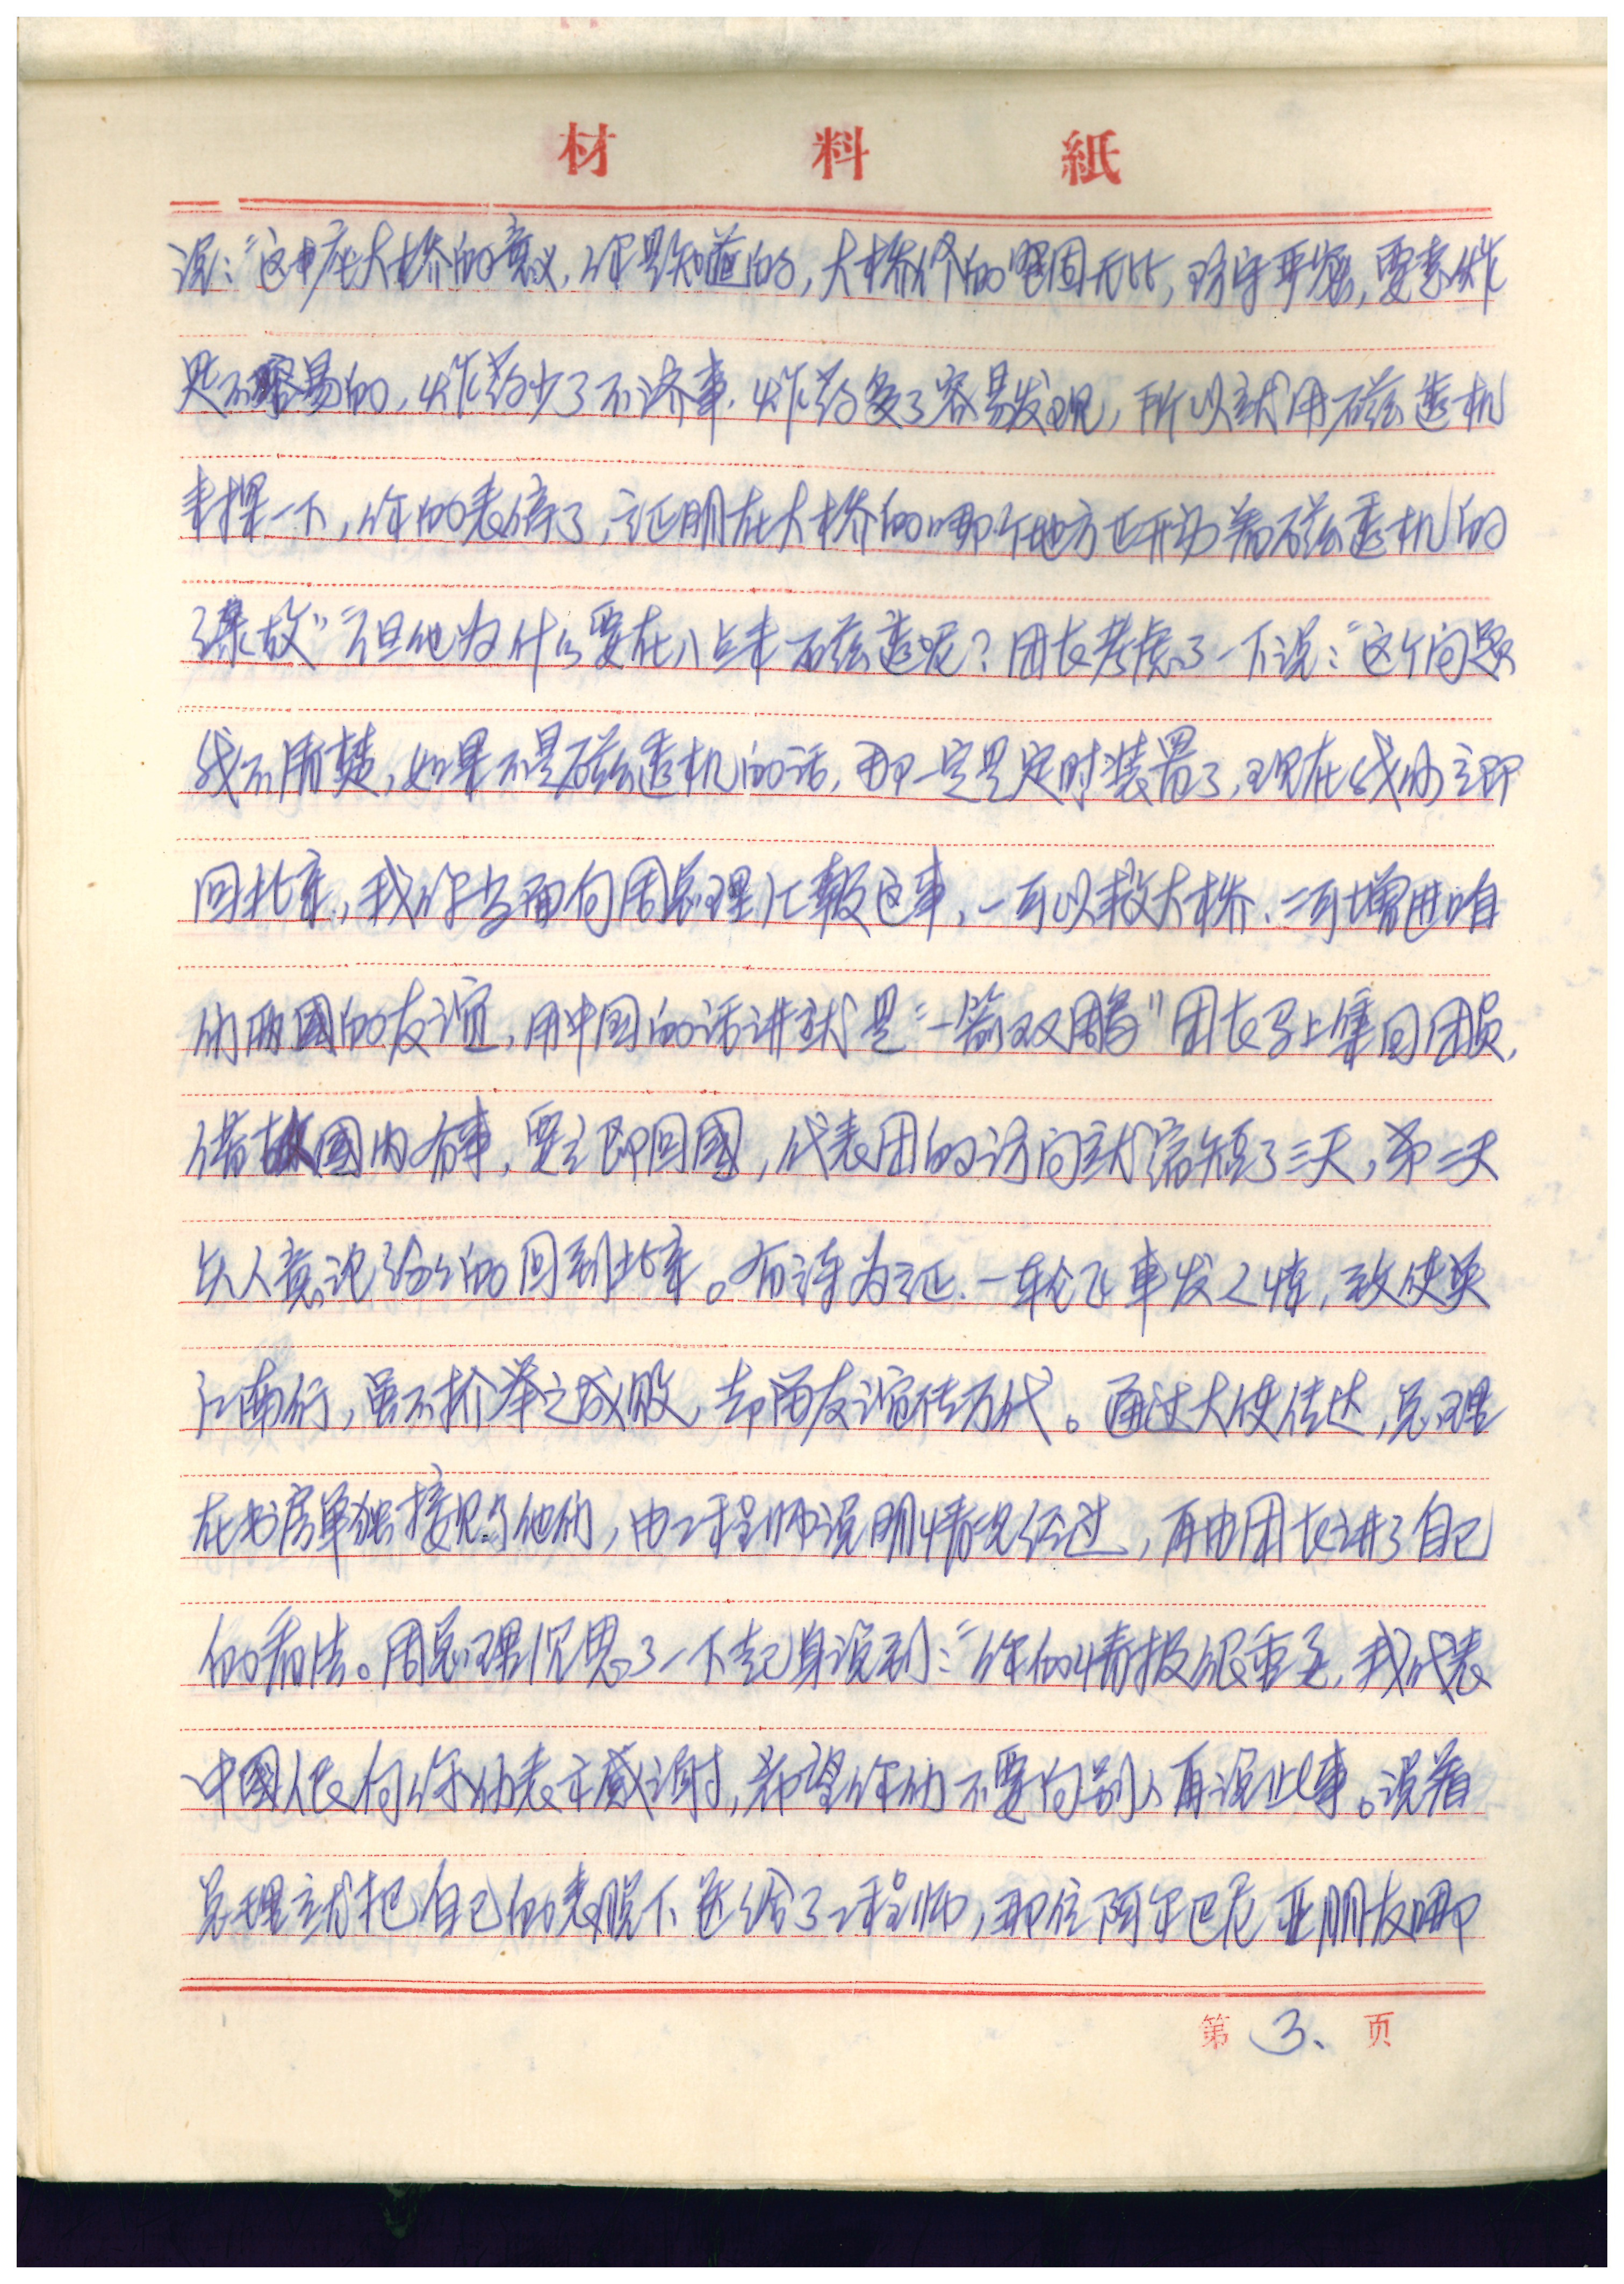 材料紙
说：“这座大桥的意义，你是知道的，大桥修的坚固无比，防守严密，要想炸
是不容易的，炸药少了不济事，炸药多了容易发现，所以就用磁遥机
来撑一下，你的表停了，证明在大桥的哪个地方正开动着磁遥机的
缘故”“但他为什么要在八点来磁遥呢？团长考虑了一下说：“这个问题
我不清楚，如果不是磁遥机的话，那一定是定时装置了，现在我们立即
回北京，我你当面向周总理汇報这事，一可以救大桥，二可增进咱
们两國的友谊，用中国的话讲就是“一箭双鵰”团长马上集回团员，
借故國内有事，要立即回國，代表团的访问就缩短了三天，第二天
失人意讼给的回到北京。有诗为证，一轮飞車发人情，致使英
江南行，虽不析举之成败，却留友谊传万代。通过大使传达，总理
在书房单独接见了他们，由工程师说明情况经过，再由团长讲了自己
的看法。周总理沉思了一下起身说到：“你们的情报很重要，我代表
中國人民向你们表示感谢，希望你们不要向别人再说此事。说着
总理就把自己的表脱下送给了工程师，那位阿尔巴尼亚朋友哪
第3、页